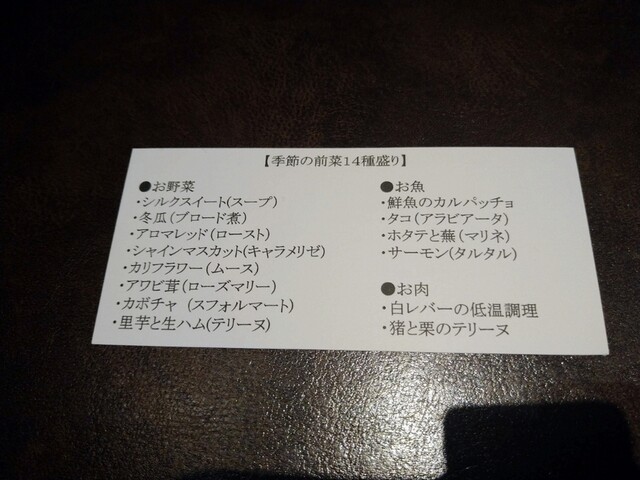 【季節の前菜14種盛り】
●お野菜
・シルクスイート(スープ)
・冬瓜(ブロード煮)
・アロマレッド(ロースト)
・シャインマスカット(キャラメリゼ)
・カリフラワー(ムース)
・アワビ茸(ローズマリー)
・カボチャ (スフォルマート)
・里芋と生ハム(テリーヌ)
●お魚
・鮮魚のカルパッチョ
・タコ(アラビアータ)
・ホタテと蕪(マリネ)
・サーモン(タルタル)
●お肉
・白レバーの低温調理
・猪と栗のテリーヌ